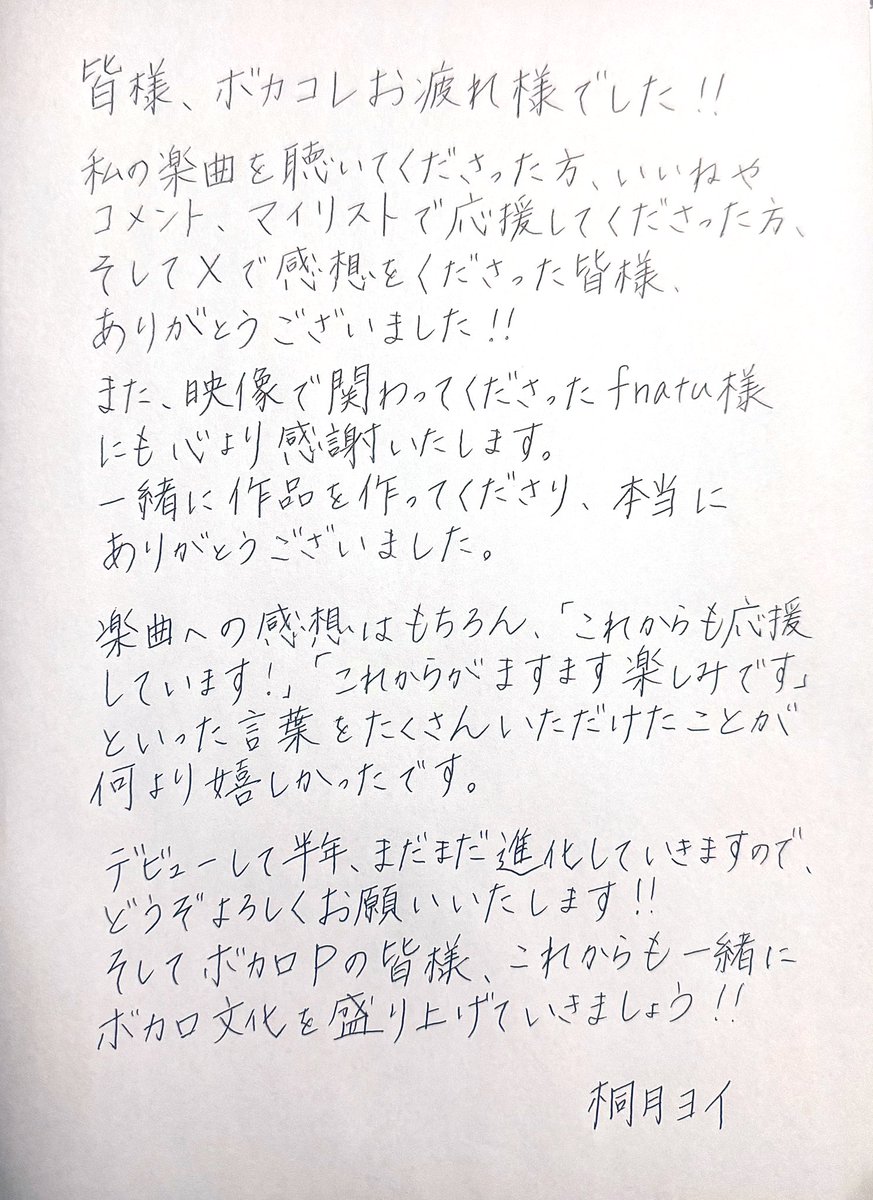 皆様、ボカコレお疲れ様でした!!
私の楽曲を聴いてくださった方、いいねや
コメント、マイリストで応援してくださった方、
そしてXで感想をくださった皆様、
ありがとうございました!!
また、映像で関わってくださったfnatu様
にも心より感謝いたします。
一緒に作品を作ってくださり、本当に
ありがとうございました。
楽曲への感想はもちろん、「これからも応援
しています!」「これからがますます楽しみです」
といった言葉をたくさんいただけたことが
何より嬉しかったです。
デビューして半年、まだまだ進化していきますので、
どうぞよろしくお願いいたします!!
そしてボカロPの皆様、これからも一緒に
ボカロ文化を盛り上げていきましょう!!
桐月ヨイ